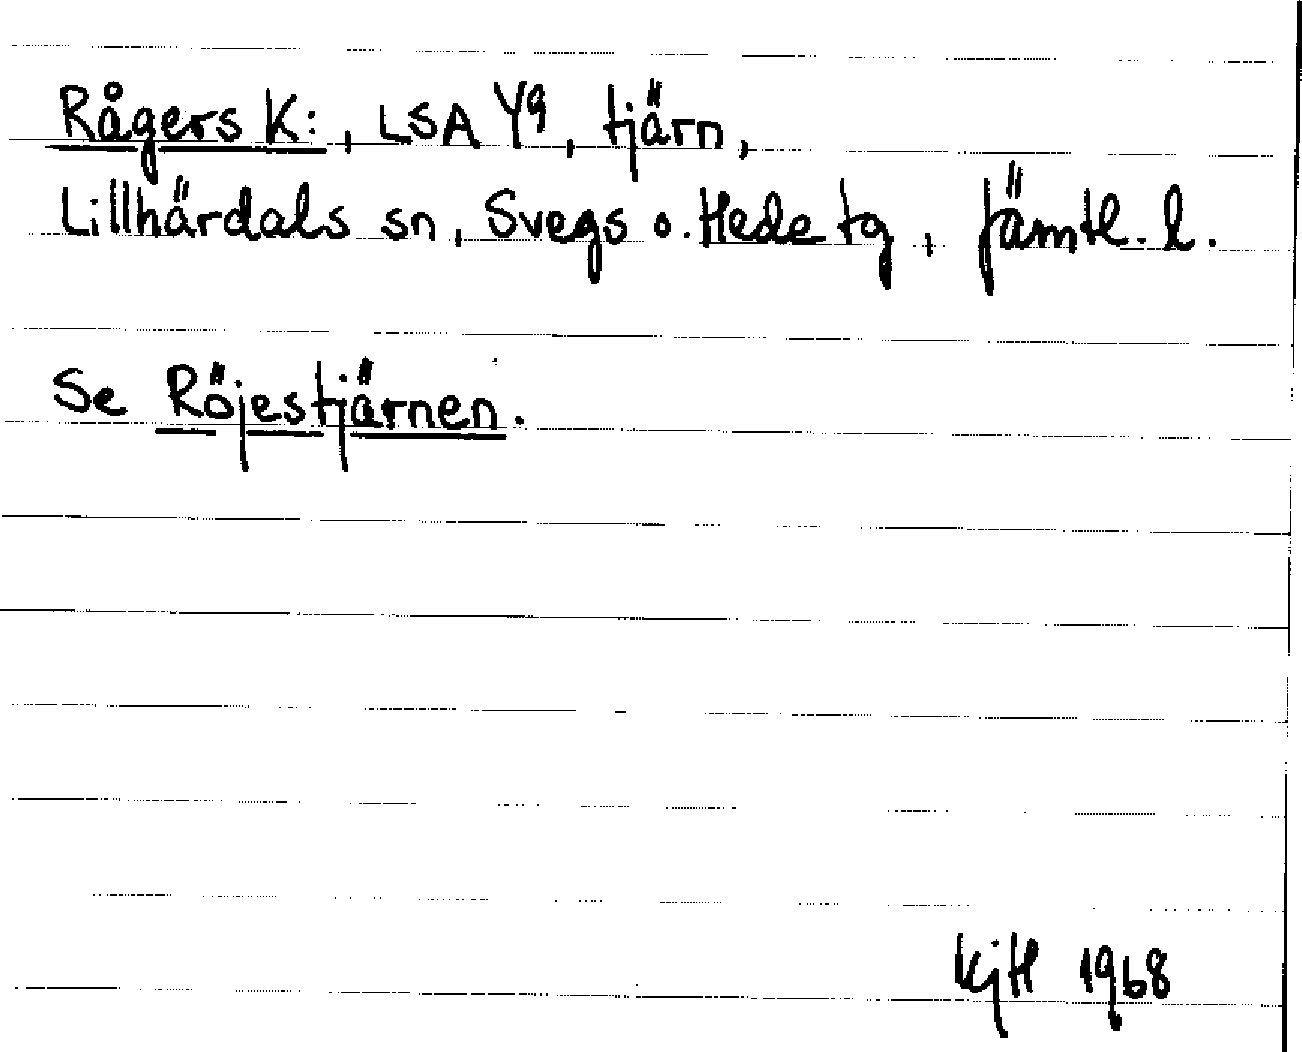 Rågers K:, LSA Y9, tjärn,
Lillhärdals sn, Svegs o. Hede tg, Jämtl. l.
Se Röjestjärnen.
KjH 1968